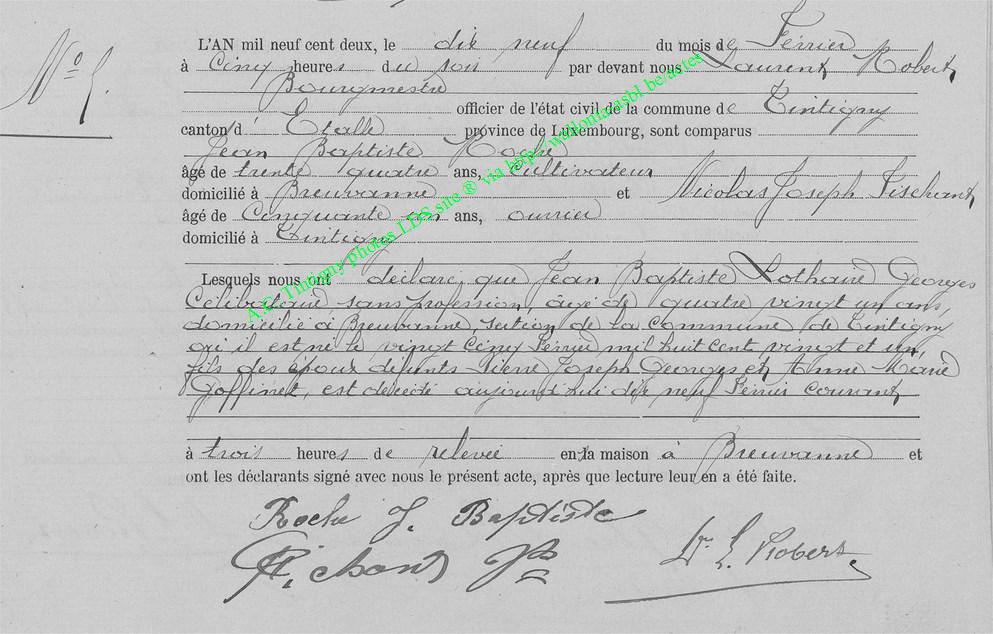 N° 5.
L'AN mil neuf cent deux, le dix neuf du mois de Février
à Cinq heures du soir par devant nous Laurent Robert
Bourgmestre
officier de l'état civil de la commune de Tintigny
canton d' Etalle province de Luxembourg, sont comparus
Jean Baptiste Roche
âgé de trente quatre ans, Cultivateur
domicilié à Breuvanne et Nicolas Joseph
âgé de Cinquante un ans, ouvrier
domicilié à Tintigny
Lesquels nous ont déclaré que Jean Baptiste Lothaire Georges
Célibataire, sans profession, agé de quatre vingt un ans,
domicilié à Breuvanne, section de la commune de Tintigny
où il est né le vingt Cinq Février mil huit cent vingt et un,
fils des époux défunts Pierre Joseph Georges et Anne Marie
Goffinet, est décédé aujourd'hui dix neuf Février courant
à trois heures de relevée en la maison à Breuvanne et
ont les déclarants signé avec nous le présent acte, après que lecture leur en a été faite.
Roche J. Baptiste
Dr. L. Robert
A.C. Tintigny photos LDS site ® via http://wallonia.asbl.be/actes